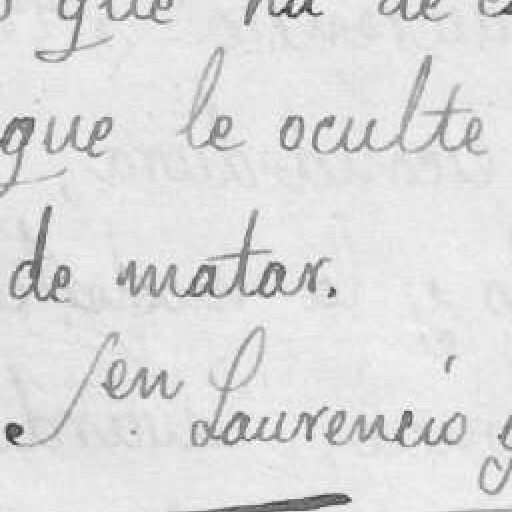 que ha de
que le oculte
de matar.
en
Laurencio